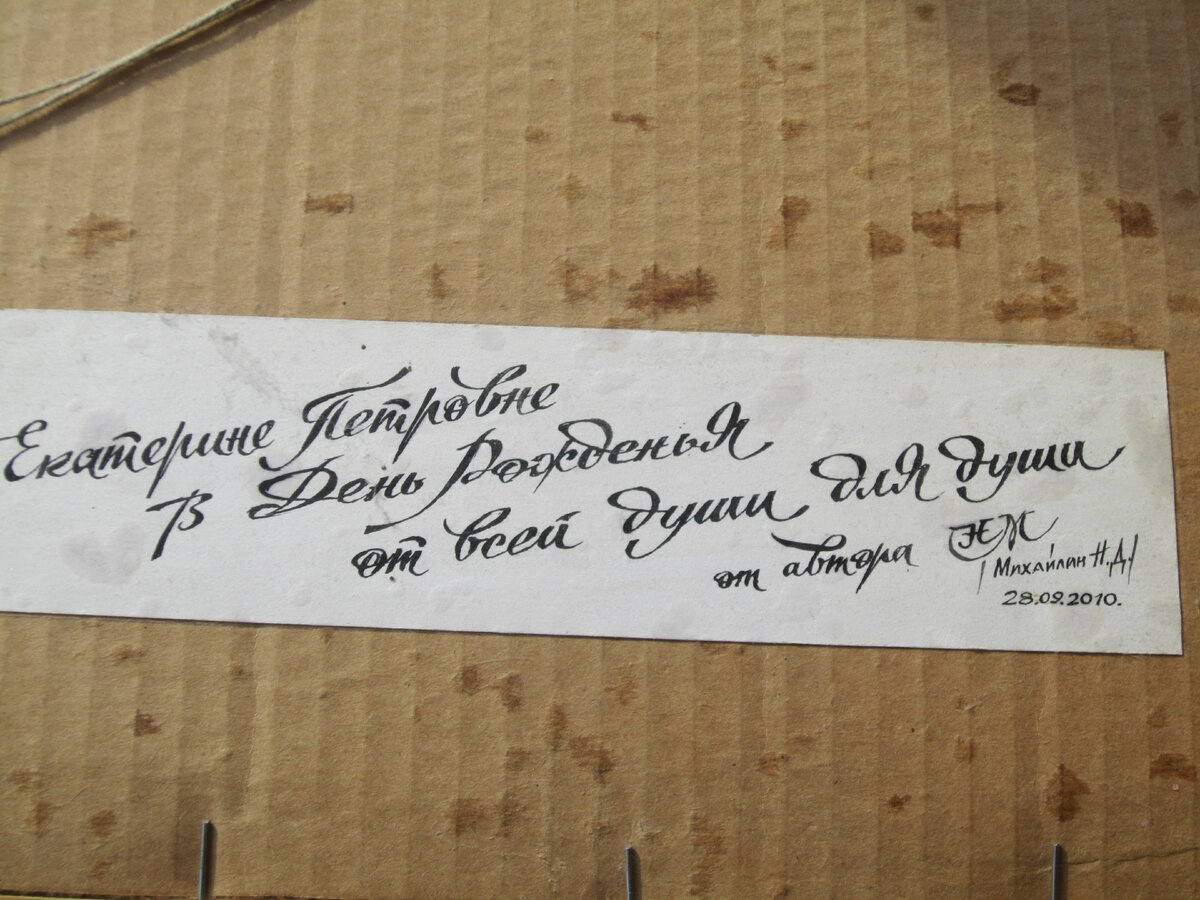 Екатерине Петровне
В День Рожденья
от всей души для души
от автора НМ
/Михайлин Н.Д./
28.09.2010.